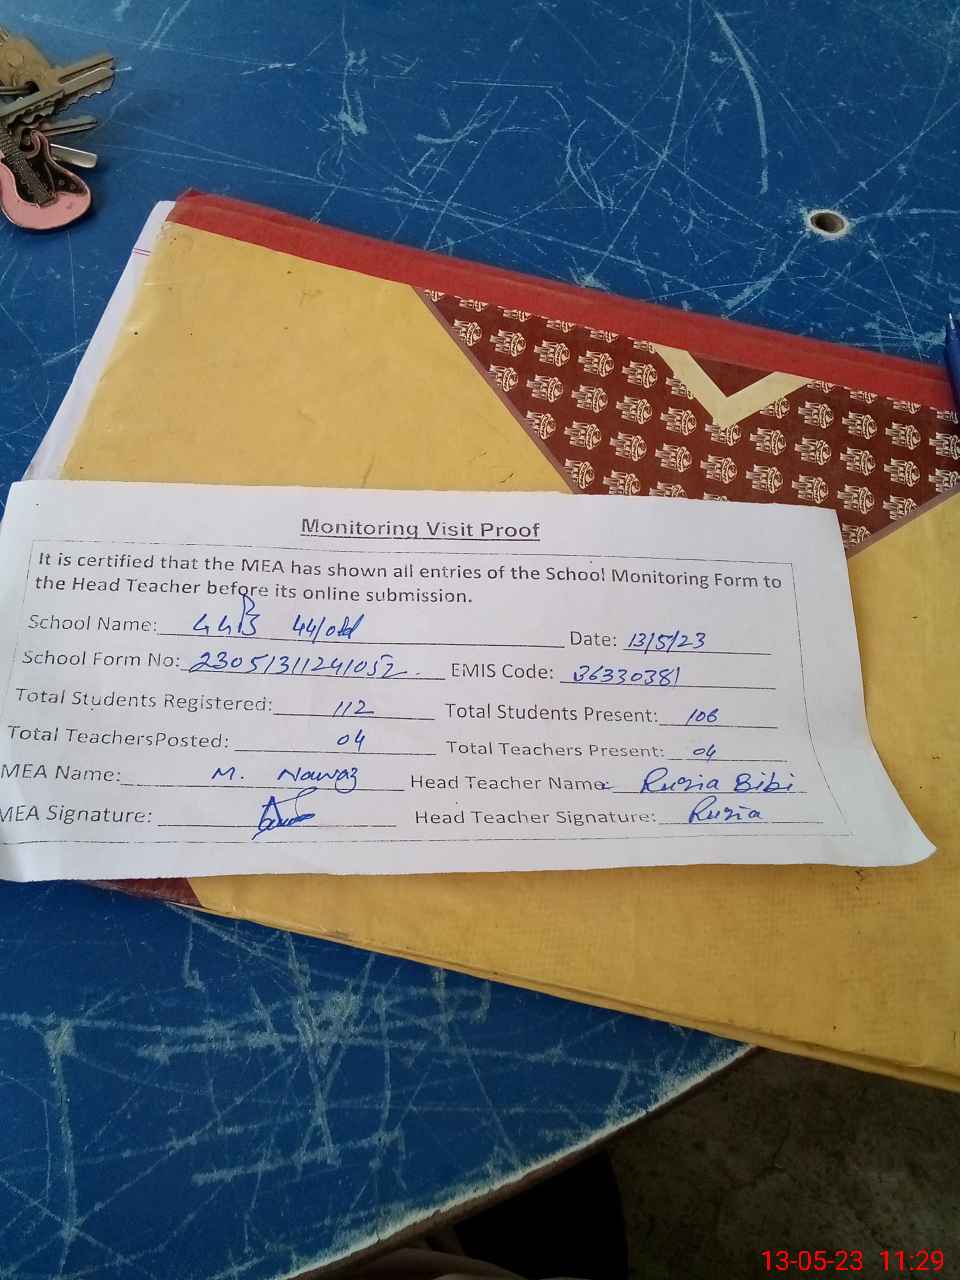 Monitoring Visit Proof
It is certified that the MEA has shown all entries of the School Monitoring Form to
the Head Teacher before its online submission.
School Name: 44/old Date: 13/5/23
School Form No: 23051311241052 EMIS Code: 36330381
Total Students Registered: 112 Total Students Present: 106
Total TeachersPosted: 04 Total Teachers Present: 04
MEA Name: M. Nawaz Head Teacher Name: Ruzia Bibi
MEA Signature: Head Teacher Signature: Ruzia
13-05-23 11:29